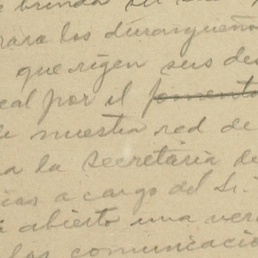 brinda
para los durangueños
que rigen sus des
eal por el fomento
de nuestra red de
a la secretaria de
icas a cargo del Sr.
abierto una ver
las comunicacio